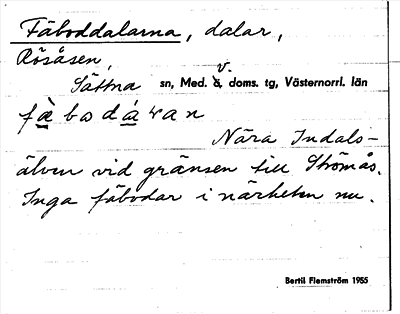 Fäboddalarna, dalar,
Rösåsen,
Sättna sn, Med. v. å, doms. tg, Västernorrl. län
fä̀bodáran
Nära Indals-
älven vid gränsen till Strömås.
Inga fäbodar i närheten nu.
Bertil Flemström 1955